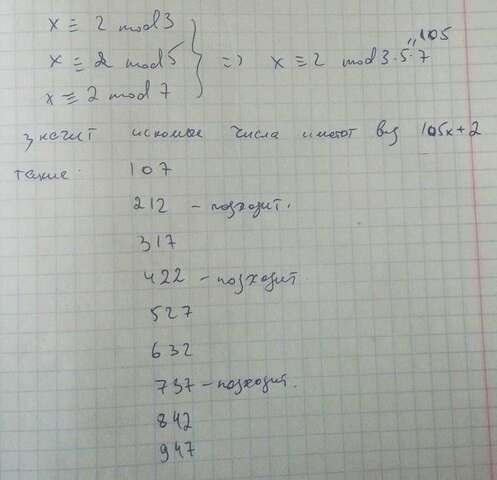 x ≡ 2 mod 3
x ≡ 2 mod 5 } => x ≡ 2 mod 3·5·7 " 105
x ≡ 2 mod 7
значит искомые числа имеют вид 105x+2
такие: 107
212 - подходит.
317
422 - подходит.
527
632
737 - подходит.
842
947